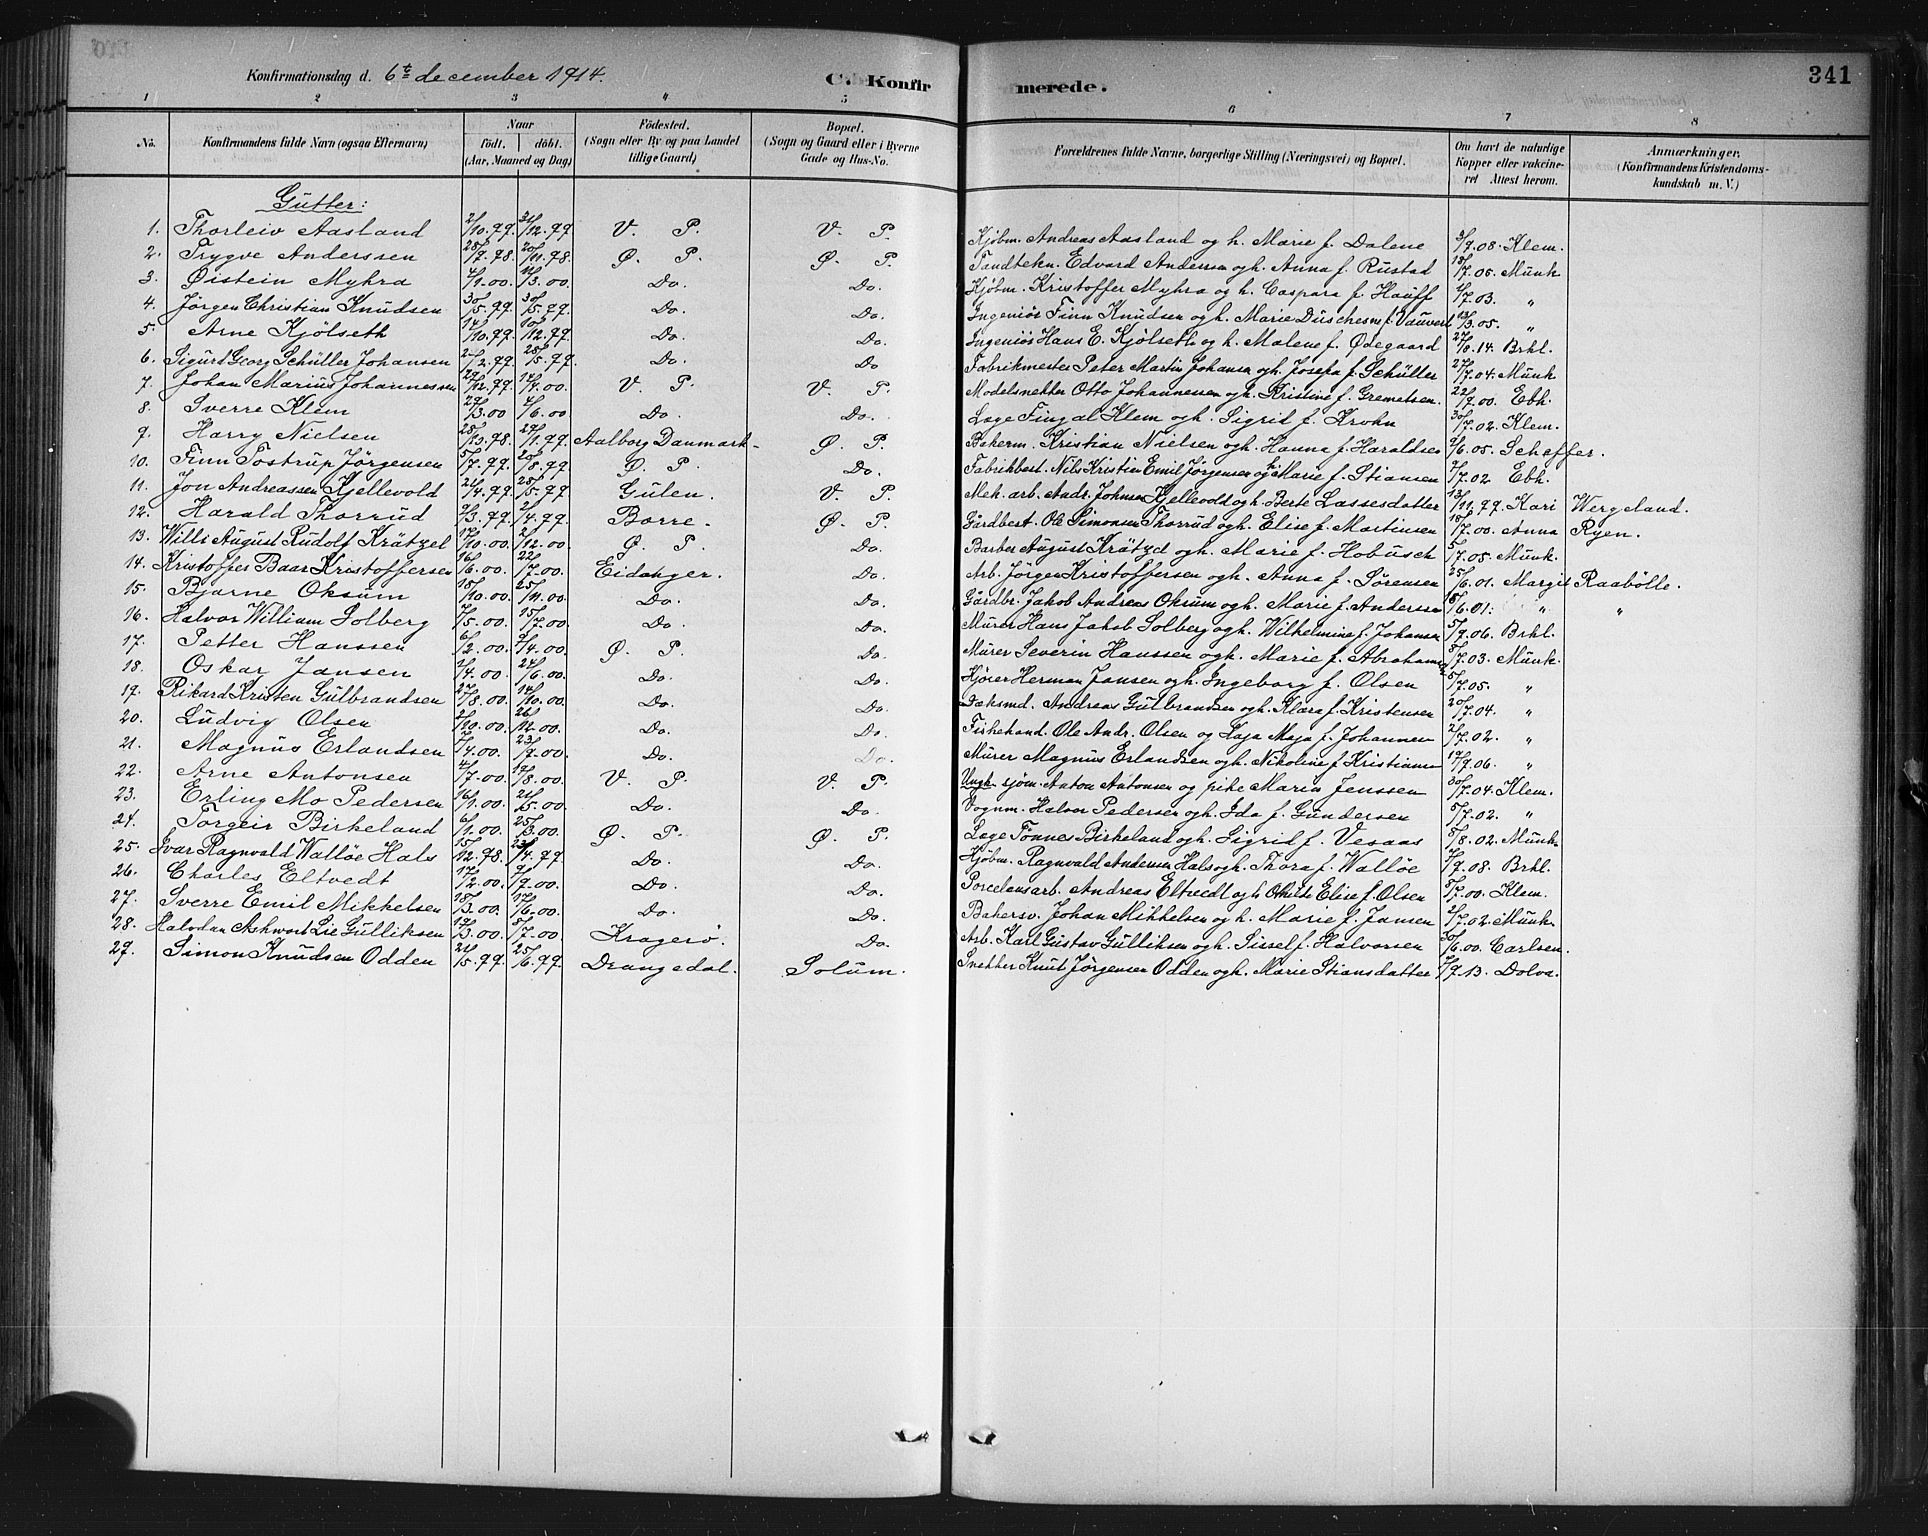 Konfirmationsdag d. 6te december 1914.
C. Konfirmerede.
341
1 2 3 4 5 6 7 8
No.
Konfirmandens fulde Navn (ogsaa Efternavn)
Naar
födt. döbt.
(Aar, Maaned og Dag)
Födested.
(Sogn eller By og paa Landet tillige Gaard)
Bopæl.
(Sogn og Gaard eller i Byerne Gade og Hus-No.
Forældrenes fulde Navne, borgerlige Stilling (Næringsvei) og Bopæl.
Om havt de naturlige Kopper eller vakcineret Attest herom.
Anmærkninger.
(Konfirmandens Kristendomskundskab m. V.)
Gutter:
1. Thorleiv Aasland 2/10.99. 31/12.99 V. P. V. P. Kjøbm. Andreas Aasland og h. Marie f. Dalene 3/9.08. Klem.
2. Trygve Anderssen 28/9.98. 20/11.98. Ø. P. Ø. P. Tandtekn. Edvard Andersen og h. Anna f. Rustad 15/7.05. Munk
3. Øistein Myhra 4/1.00. 11/3.00. Do. Do. Kjøbm. Kristoffer Myhra og h. Caspara f. Hauff 6/7.03. "
4. Jörgen Christian Knudsen 30/5.99. 30/5.99. Do. Do. Ingeniör Finn Knudsen og h. Marie Duschesne f. Vauvert 13/3.05. "
5. Arne Kjölseth 14/10.99. 10/12.99. Do. Do. Ingeniör Hans E. Kjölseth og h. Malene f. Ødegaard 27/8.14. Brhl.
6. Sigurd Georg Schüller Johansen 2/2.99. 28/5.99. Do. Do Fabrikmester Peter Martin Johansen og h. Josefa f. Schüller 27/7.04. Munk
7. Johan Marius Johannessen 29/12.99. 12/4.00. V. P. V. P. Modelsnekker Otto Johannessen og h. Kristine f. Gremetsen. 22/9.00. Ebh.
8. Sverre Klem 29/3.00 4/6.00 Do. Do. Læge Fingal Klem og h. Sigrid f. Krohn 30/7.02. Klem.
9. Harry Nielsen 28/3.98. 29/1.99. Aalborg Danmark Ø. P. Bakerm. Kristian Nielsen og h. Hanna f. Haraldsen 9/6.05. Scheffer.
10. Finn Tostrup Jörgensen 5/7.99. 20/8.99 Ø. P. Do. Fabrikbest. Nils Kristian Emil Jörgensen og h. Marie f. Stiansen 7/7.02 Ebh.
11. Jon Andreassen Kjellevold 21/4.99. 28/5.99 Gulen. V. P. Mek. arb. Andr. Johnsen Kjellevold og h. Berte Lassesdatter 13/11.99. Kari Wergeland.
12. Harald Thorrud 9/3.99. 2/4.99. Borre. Ø. P. Gårdbest. Ole Simonsen Thorrud og h. Elise f. Martinsen 18/7.00. Anna Ryen.
13. Willi August Rudolf Krätzel 17/10.00. 2/12.00. Ø. P. Do. Barber August Krätzel og h. Marie f. Hobusch 5/7.05. Munk.
14. Kristoffer Baar Kristoffersen 16/6.00. 22/7.00. Eidanger. Do. Arb. Jörgen Kristoffersen og h. Anna f. Sörensen 25/6.01. Margit Raabölle.
15. Bjarne Oksum 15/10.00. 25/11.00. Do. Do. Gårdbr. Jakob Andreas Oksum og h. Marie f. Andersen 8/6.01. " "
16. Halvor William Solberg 7/5.00. 15/7.00 Do. Do. Murer Hans Jakob Solberg og h. Wilhelmine f. Johansen 5/9.06. Brhl.
17. Petter Hanssen 6/2.00. 9/4.00. Ø. P. Do. Murer Severin Hanssen og h. Marie f. Abrahamsen 8/7.03. Munk.
18. Oskar Jansen 2/4.00. 24/6.00. Do. Do. Kjörer Herman Jansen og h. Ingeborg f. Olsen 5/7.05. "
19. Rikard Kristen Gulbrandsen 27/8.00. 14/10.00. Do. Do. Andreas Gulbrandsen og h. Klara f. Kristensen 20/7.04. "
20. Ludvig Olsen 2/10.00. 26/12.00. Do. Do. Fiskehand. Ole Andr. Olsen og Laja Maja f. Johannen 2/7.02. "
21. Magnus Erlandsen 7/4.00. 23/9.00. Do. Do. Murer Magnus Erlandsen og h. Nikoline f. Kristiansen 19/9.06. "
22. Arne Antonsen 4/7.00. 19/8.00. V. P. V. P. Ungk. sjöm. Anton Antonsen og pike Maria Jenssen 30/7.04. Klem.
23. Erling Mo Pedersen 16/1.00. 21/5.00. Do. Do. Vognm. Halvor Pedersen og h. Ida f. Gundersen 5/7.02. "
24. Torgeir Birkeland 6/1.00. 25/3.00. Ø. P. Ø. P. Læge Tönnes Birkeland og h. Sigrid f. Vesaas 5/8.02. Munk.
25. Ivar Ragnvald Wallöe Hals 15/12.98. 23/4.99. Do. Do. Kjöbm. Ragnvald Andersen Hals og h. Thora f. Wallöe 7/9.08. Brhl.
26. Charles Eltvedt 17/2.00. 9/9.00. Do. Do. Porcelensarb. Andreas Eltvedt og h. Othilde Elise f. Olsen 8/7.00. Klem.
27. Sverre Emil Mikkelsen 18/3.00. 17/6.00. Do. Do. Bakersv. Johan Mikkelsen og h. Marie f. Jansen 2/7.02. Munk.
28. Halvdan Ashwort Lie Gulliksen 19/3.00. 8/7.00 Kragerö. Do. Arb. Karl Gustav Gulliksen og h. Sissel f. Halvorsen 30/6.00. Carlsen.
29. Simon Knudsen Odden 21/5.99. 25/6.99. Drangedal. Solum. Snekker Knut Jørgensen Odden og h. Marie Stiansdatter 7/9.13. Dolva.